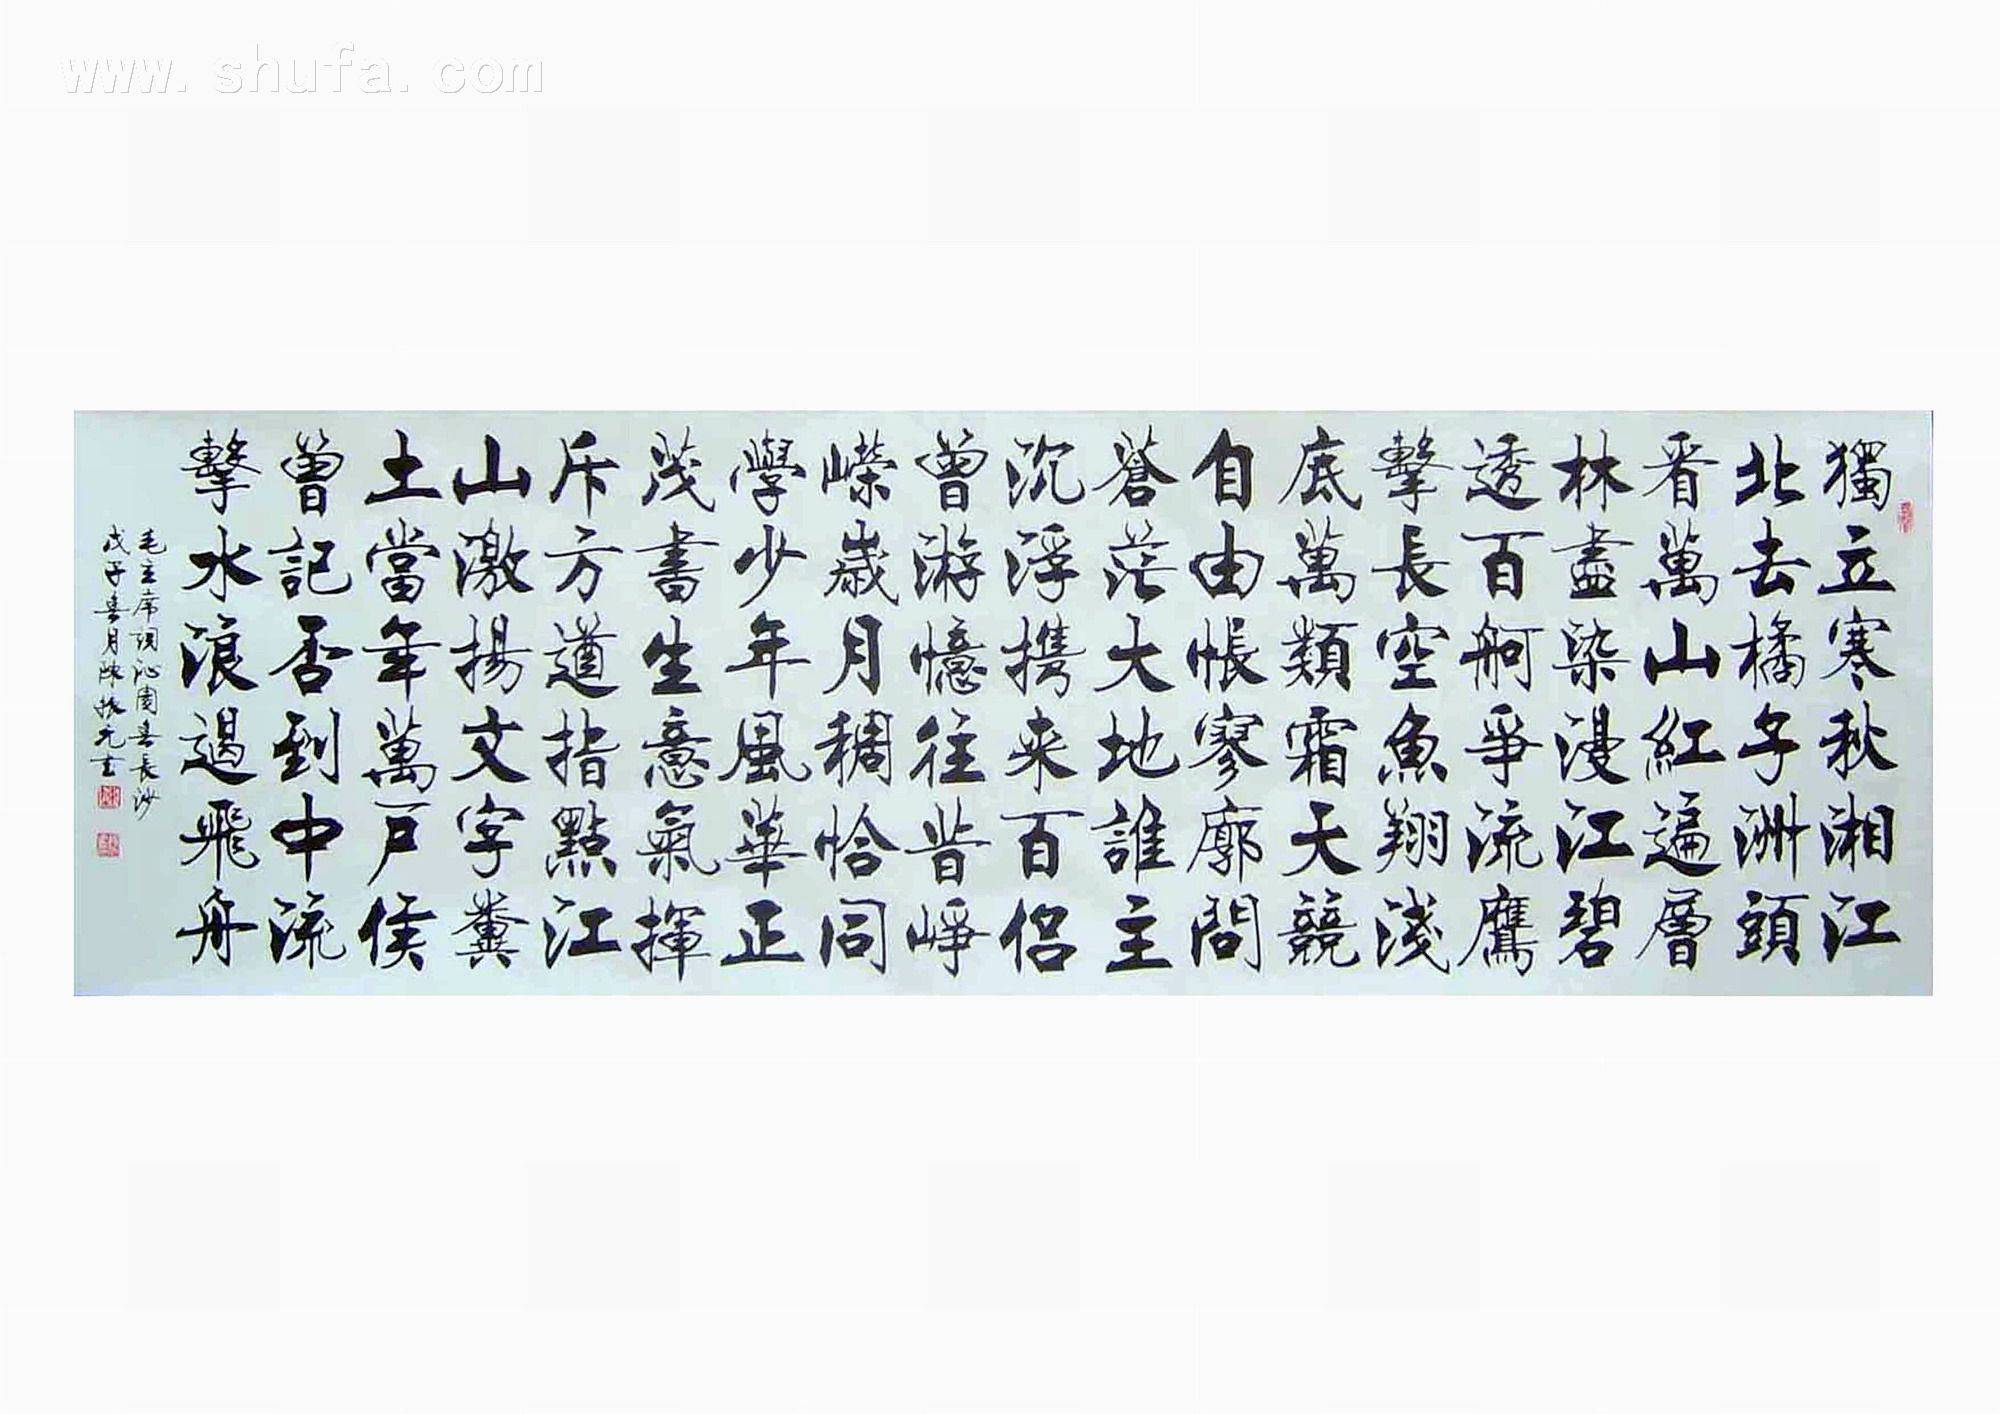 www.shufa.com
獨立寒秋湘江
北去橘子洲頭
看萬山紅遍層
林盡染漫江碧
透百舸爭流鷹
擊長空魚翔淺
底萬類霜天競
自由悵寥廓問
蒼茫大地誰主
沉浮携來百侣
曾游憶往昔崢
嶸歲月稠恰同
學少年風華正
茂書生意氣揮
斥方遒指點江
山激揚文字糞
土當年萬戶侯
曾記否到中流
擊水浪遏飛舟
毛主席詞沁園春長沙
戊子春月陳振元書